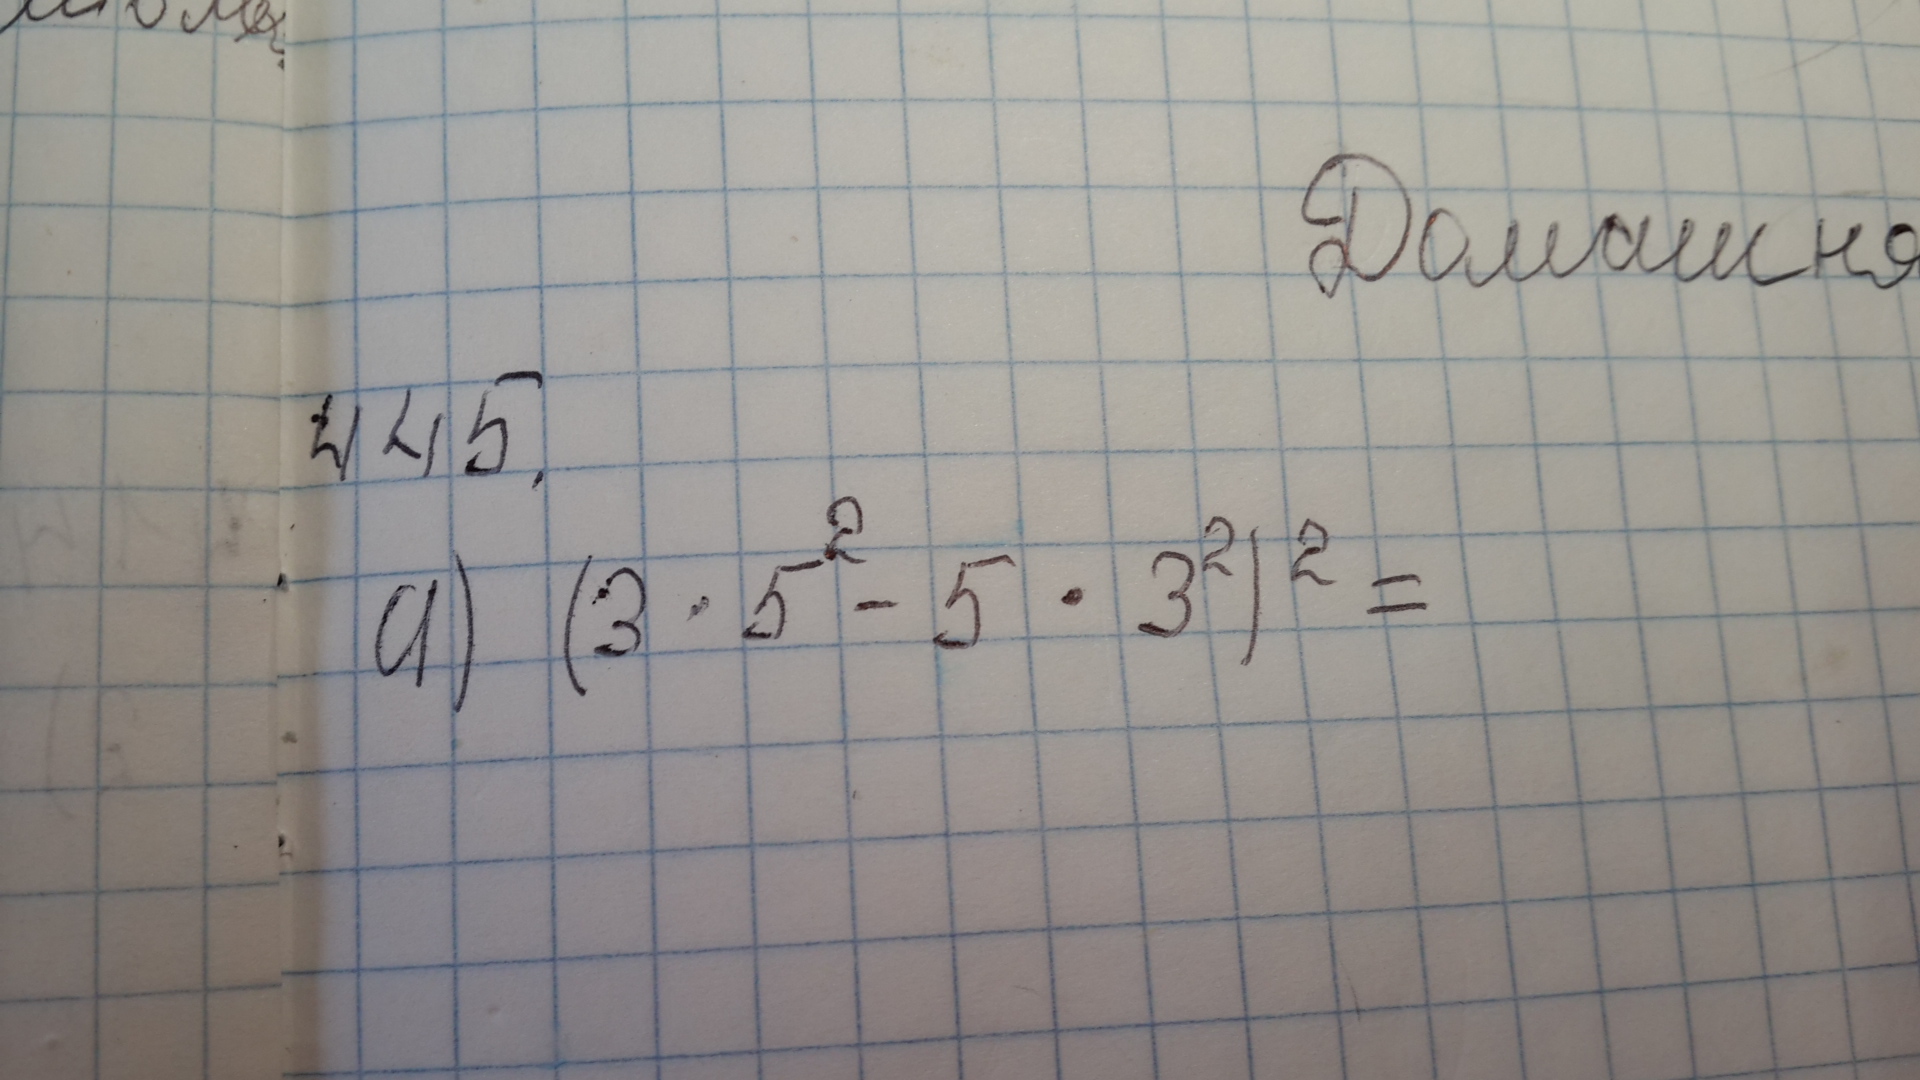 Домашня
445.
а) (3 · 5² - 5 · 3²)² =